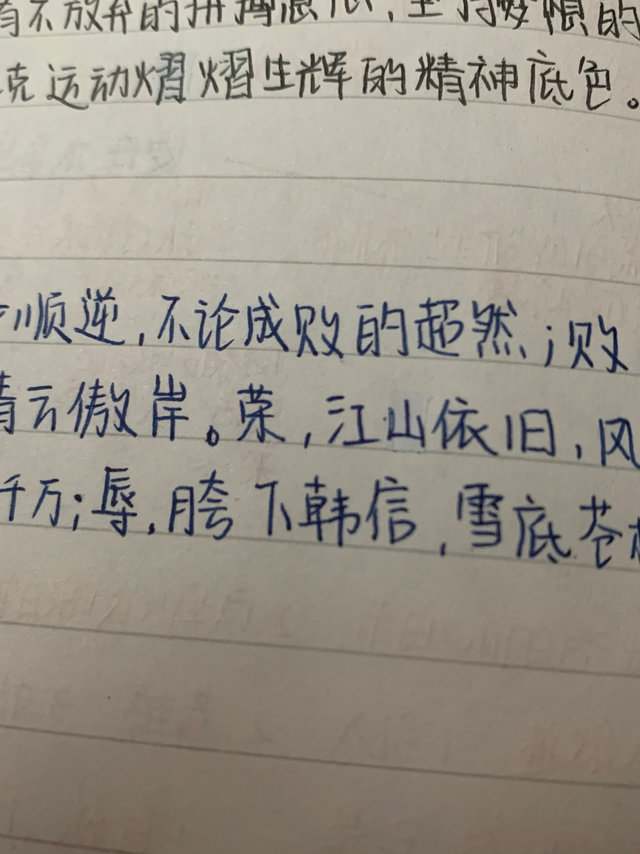 不放弃的拼搏
克运动熠熠生辉的精神底色。
顺逆,不论成败的超然;败
云傲岸。荣,江山依旧,风
千万;辱,胯下韩信,雪底苍